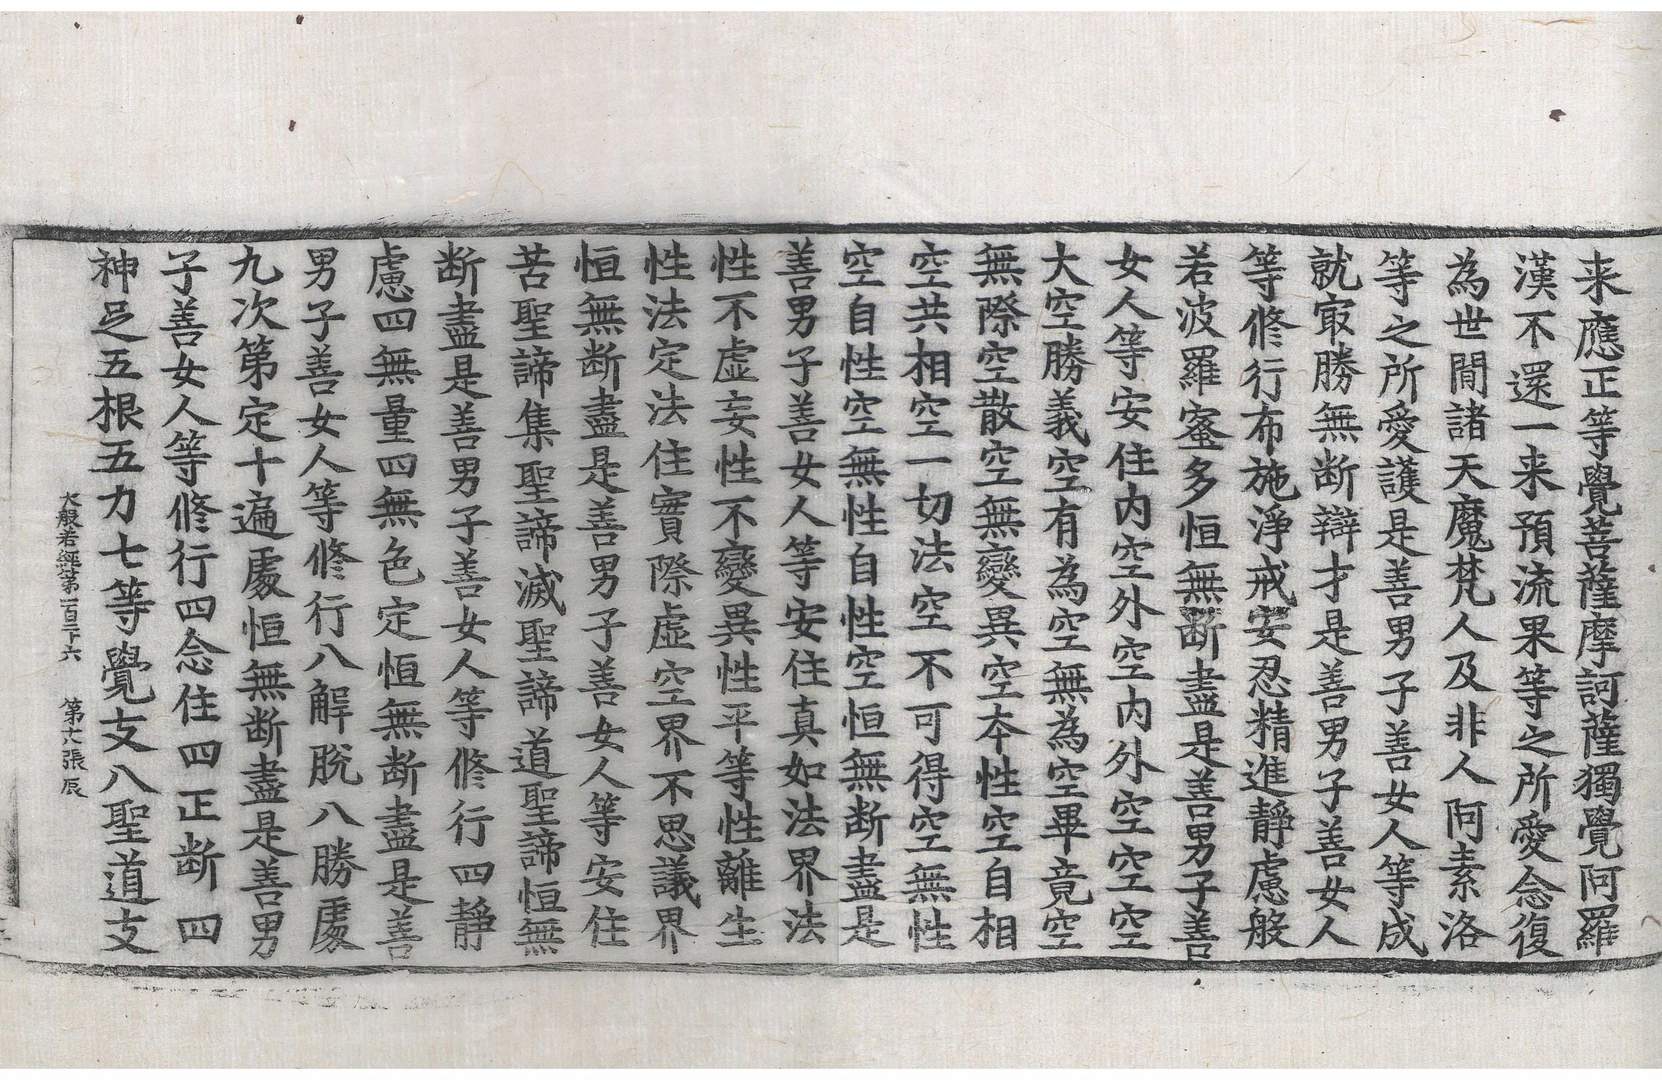 来應正等覺菩薩摩訶薩獨覺阿羅
漢不還一来預流果等之所愛念復
為世間諸天魔梵人及非人阿素洛
等之所愛護是善男子善女人等成
就㝡勝無断辯才是善男子善女人
等修行布施淨戒安忍精進靜慮般
若波羅蜜多恒無断盡是善男子善
女人等安住内空外空内外空空空
大空勝義空有為空無為空畢竟空
無際空散空無變異空本性空自相
空共相空一切法空不可得空無性
空自性空無性自性空恒無断盡是
善男子善女人等安住真如法界法
性不虚妄性不變異性平等性離生
性法定法住實際虚空界不思議界
恒無断盡是善男子善女人等安住
苦聖諦集聖諦滅聖諦道聖諦恒無
断盡是善男子善女人等修行四靜
慮四無量四無色定恒無断盡是善
男子善女人等修行八解脫八勝處
九次第定十遍處恒無断盡是善男
子善女人等修行四念住四正断四
神足五根五力七等覺支八聖道支
大般若經第一百二十六 第六張 辰